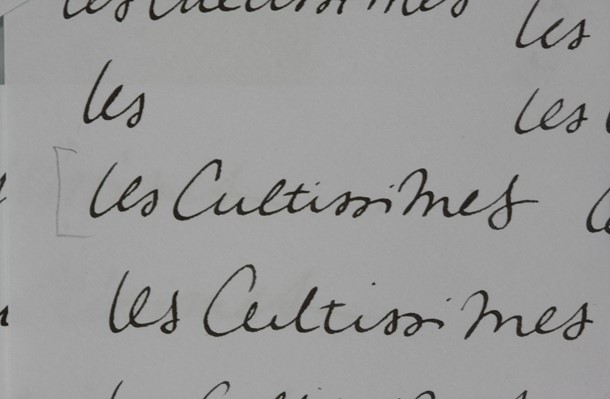 les Cultissimes les
les les
les Cultissimes
les Cultissimes